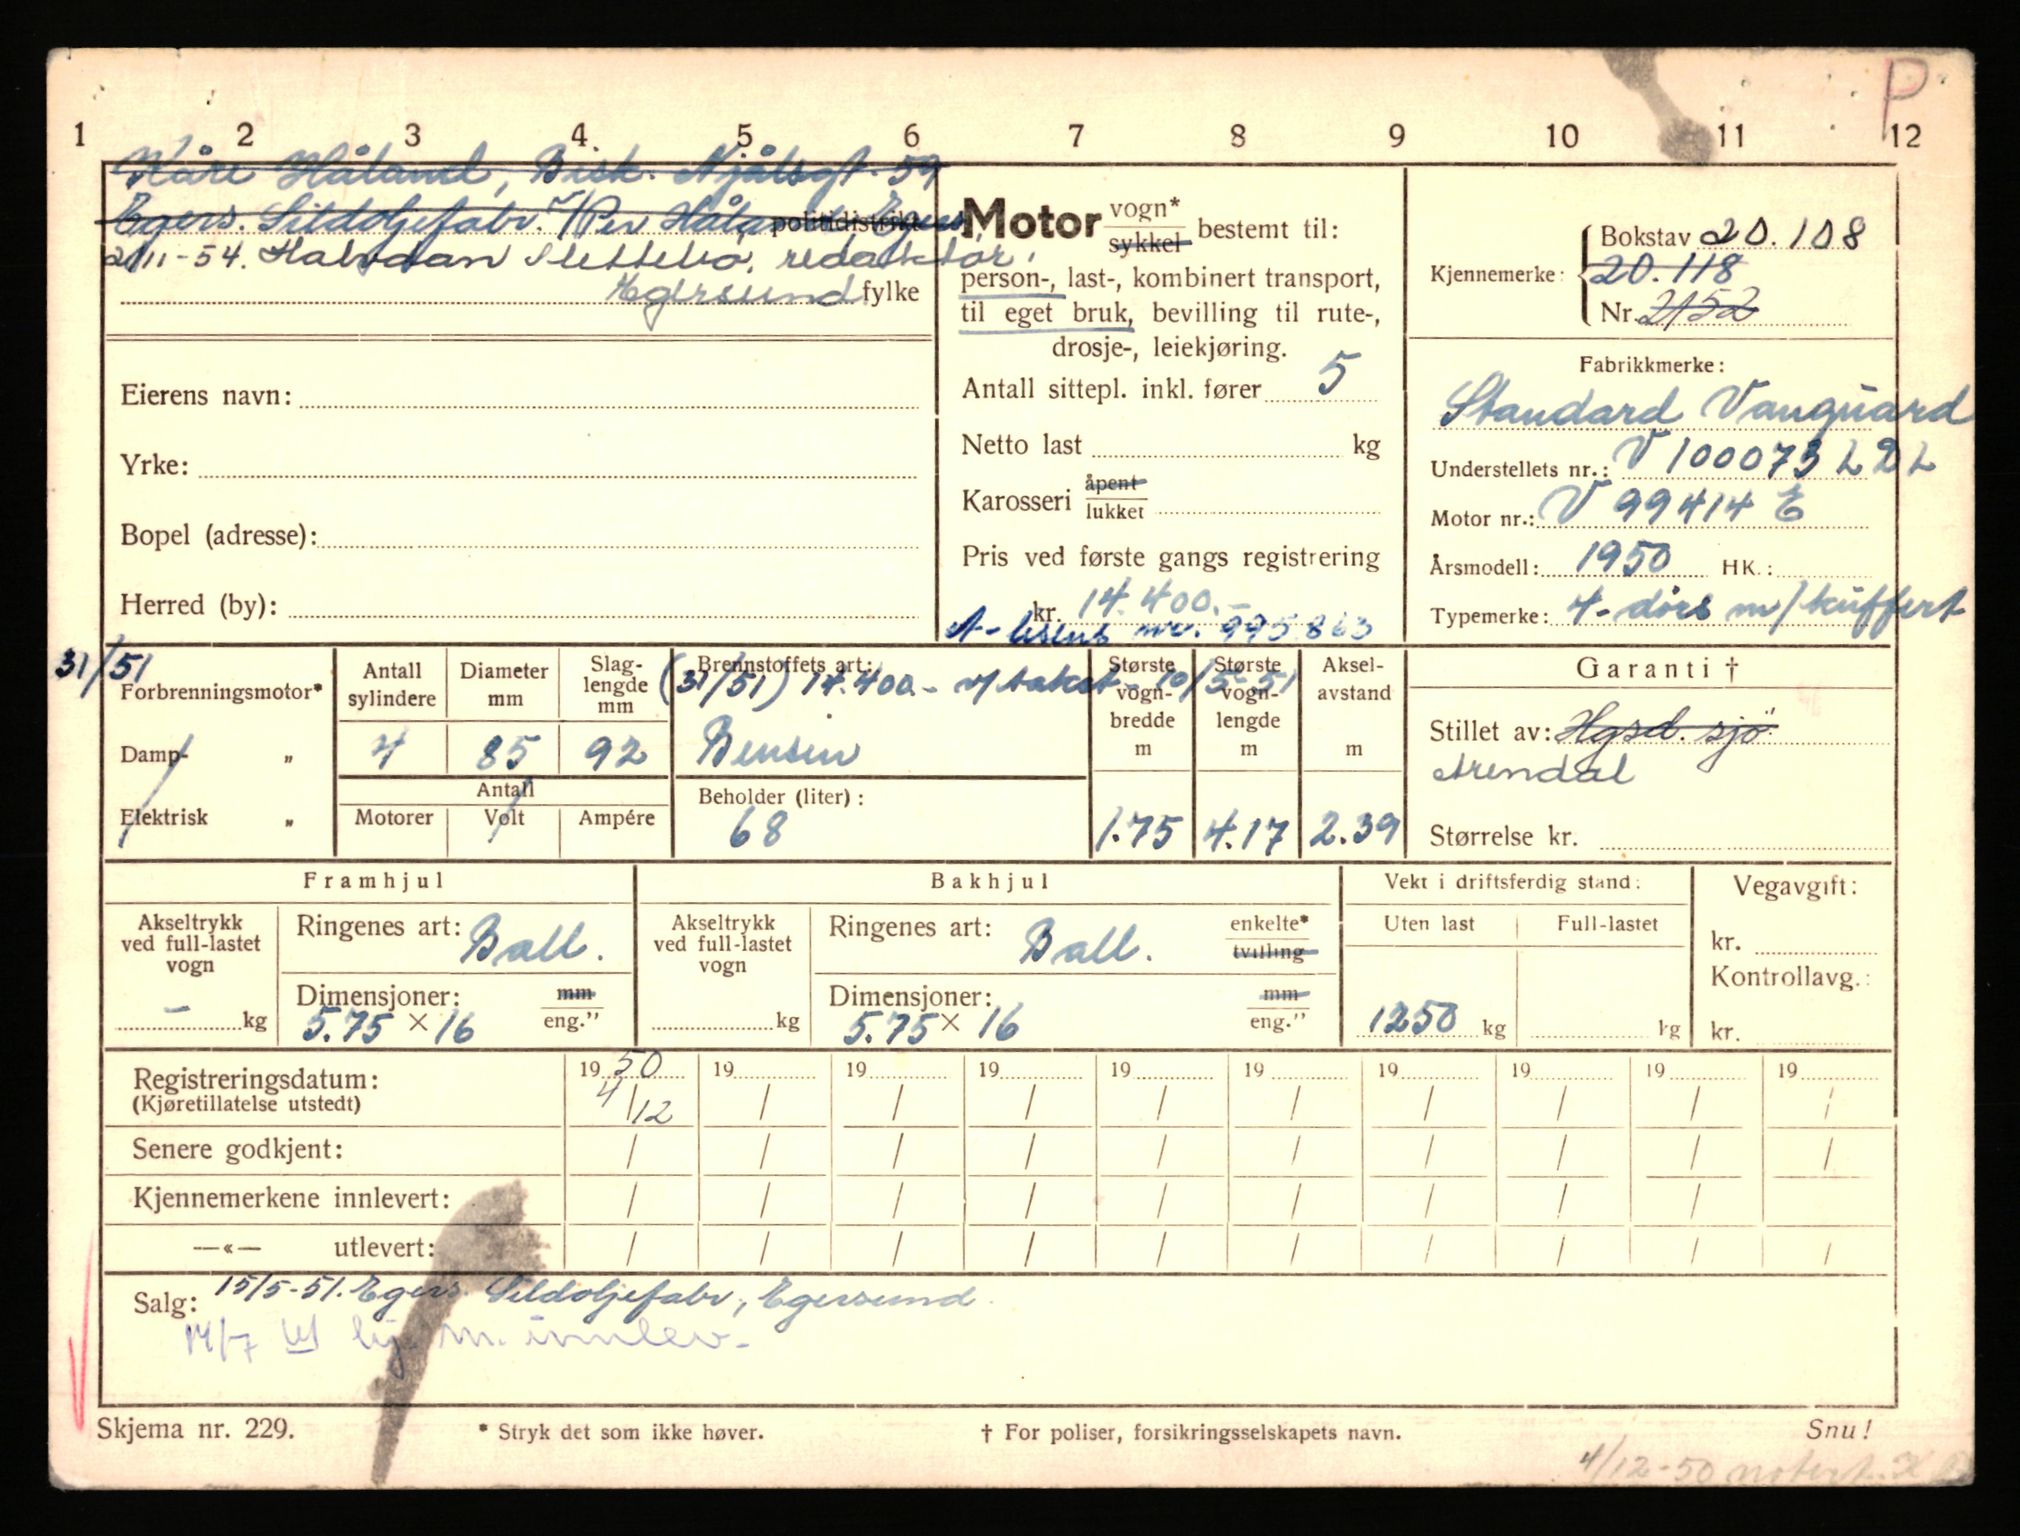 P
1 2 3 4 5 6 7 8 9 10 11 12
Kåre Håland, Bisk. Njålsgt. 59
Egers. Sildoljefabr. v/Per Håland Egers. politidistrikt
2/11-54. Halvdan Slettebø, redaktør,
Egersund fylke
Eierens navn:
Yrke:
Bopel (adresse):
Herred (by):
Motor vogn* sykkel bestemt til:
person-, last-, kombinert transport,
til eget bruk, bevilling til rute-,
drosje-, leiekjøring.
Antall sittepl. inkl. fører 5
Netto last kg
Karosseri åpent lukket
Pris ved første gangs registrering
kr. 14.400.-
A-lisens nr. 995863
Kjennemerke: Bokstav 20.108
20.118
Nr. 2152
Fabrikkmerke:
Standard Vanguard
Understellets nr.: V 100073 LDL
Motor nr.: V 99414 E
Årsmodell: 1950 HK.:
Typemerke: 4-dörs m/kuffert
31/51
Forbrenningsmotor*
Damp- „
Elektrisk „
Antall sylindere 4
Diameter mm 85
Slaglengde mm 92
Antall
Motorer Volt Ampére
Brennstoffets art:
(31/51) 14.400.- v/takst 10/5-51
Bensin
Beholder (liter):
68
Største vognbredde m 1.75
Største vognlengde m 4.17
Akselavstand m 2.39
Garanti †
Stillet av: Hgsd. sjö
Arendal
Størrelse kr.
Framhjul
Akseltrykk ved full-lastet vogn
- kg
Ringenes art: Ball.
Dimensjoner: mm
5.75 × 16 eng.”
Bakhjul
Akseltrykk ved full-lastet vogn
kg
Ringenes art: Ball. enkelte* tvilling
Dimensjoner: mm
5.75 × 16 eng.”
Vekt i driftsferdig stand:
Uten last Full-lastet
1250 kg kg
Vegavgift:
kr.
Kontrollavg.:
kr.
Registreringsdatum: 19 50 19 19 19 19 19 19 19 19 19
(Kjøretillatelse utstedt) 4/12 / / / / / / / / /
Senere godkjent: / / / / / / / / / /
Kjennemerkene innlevert: / / / / / / / / /
—«— utlevert: / / / / / / / / / /
Salg: 15/5-51. Egers. Sildoljefabr., Egersund.
14/7 kj. m. innlev.
Skjema nr. 229. * Stryk det som ikke høver. † For poliser, forsikringsselskapets navn. Snu!
4/12-50 notert.